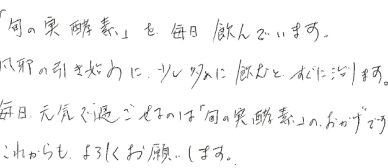 「旬の実酵素」を毎日飲んでいます。
風邪の引き始めに、少し多めに飲むと、すぐに治ります。
毎日、元気で過ごせるのは「旬の実酵素」のおかげです
これからも、よろしくお願いします。